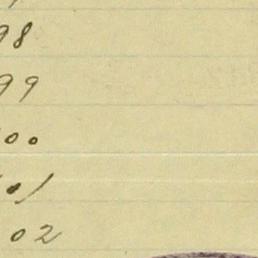 98
99
00
01
02